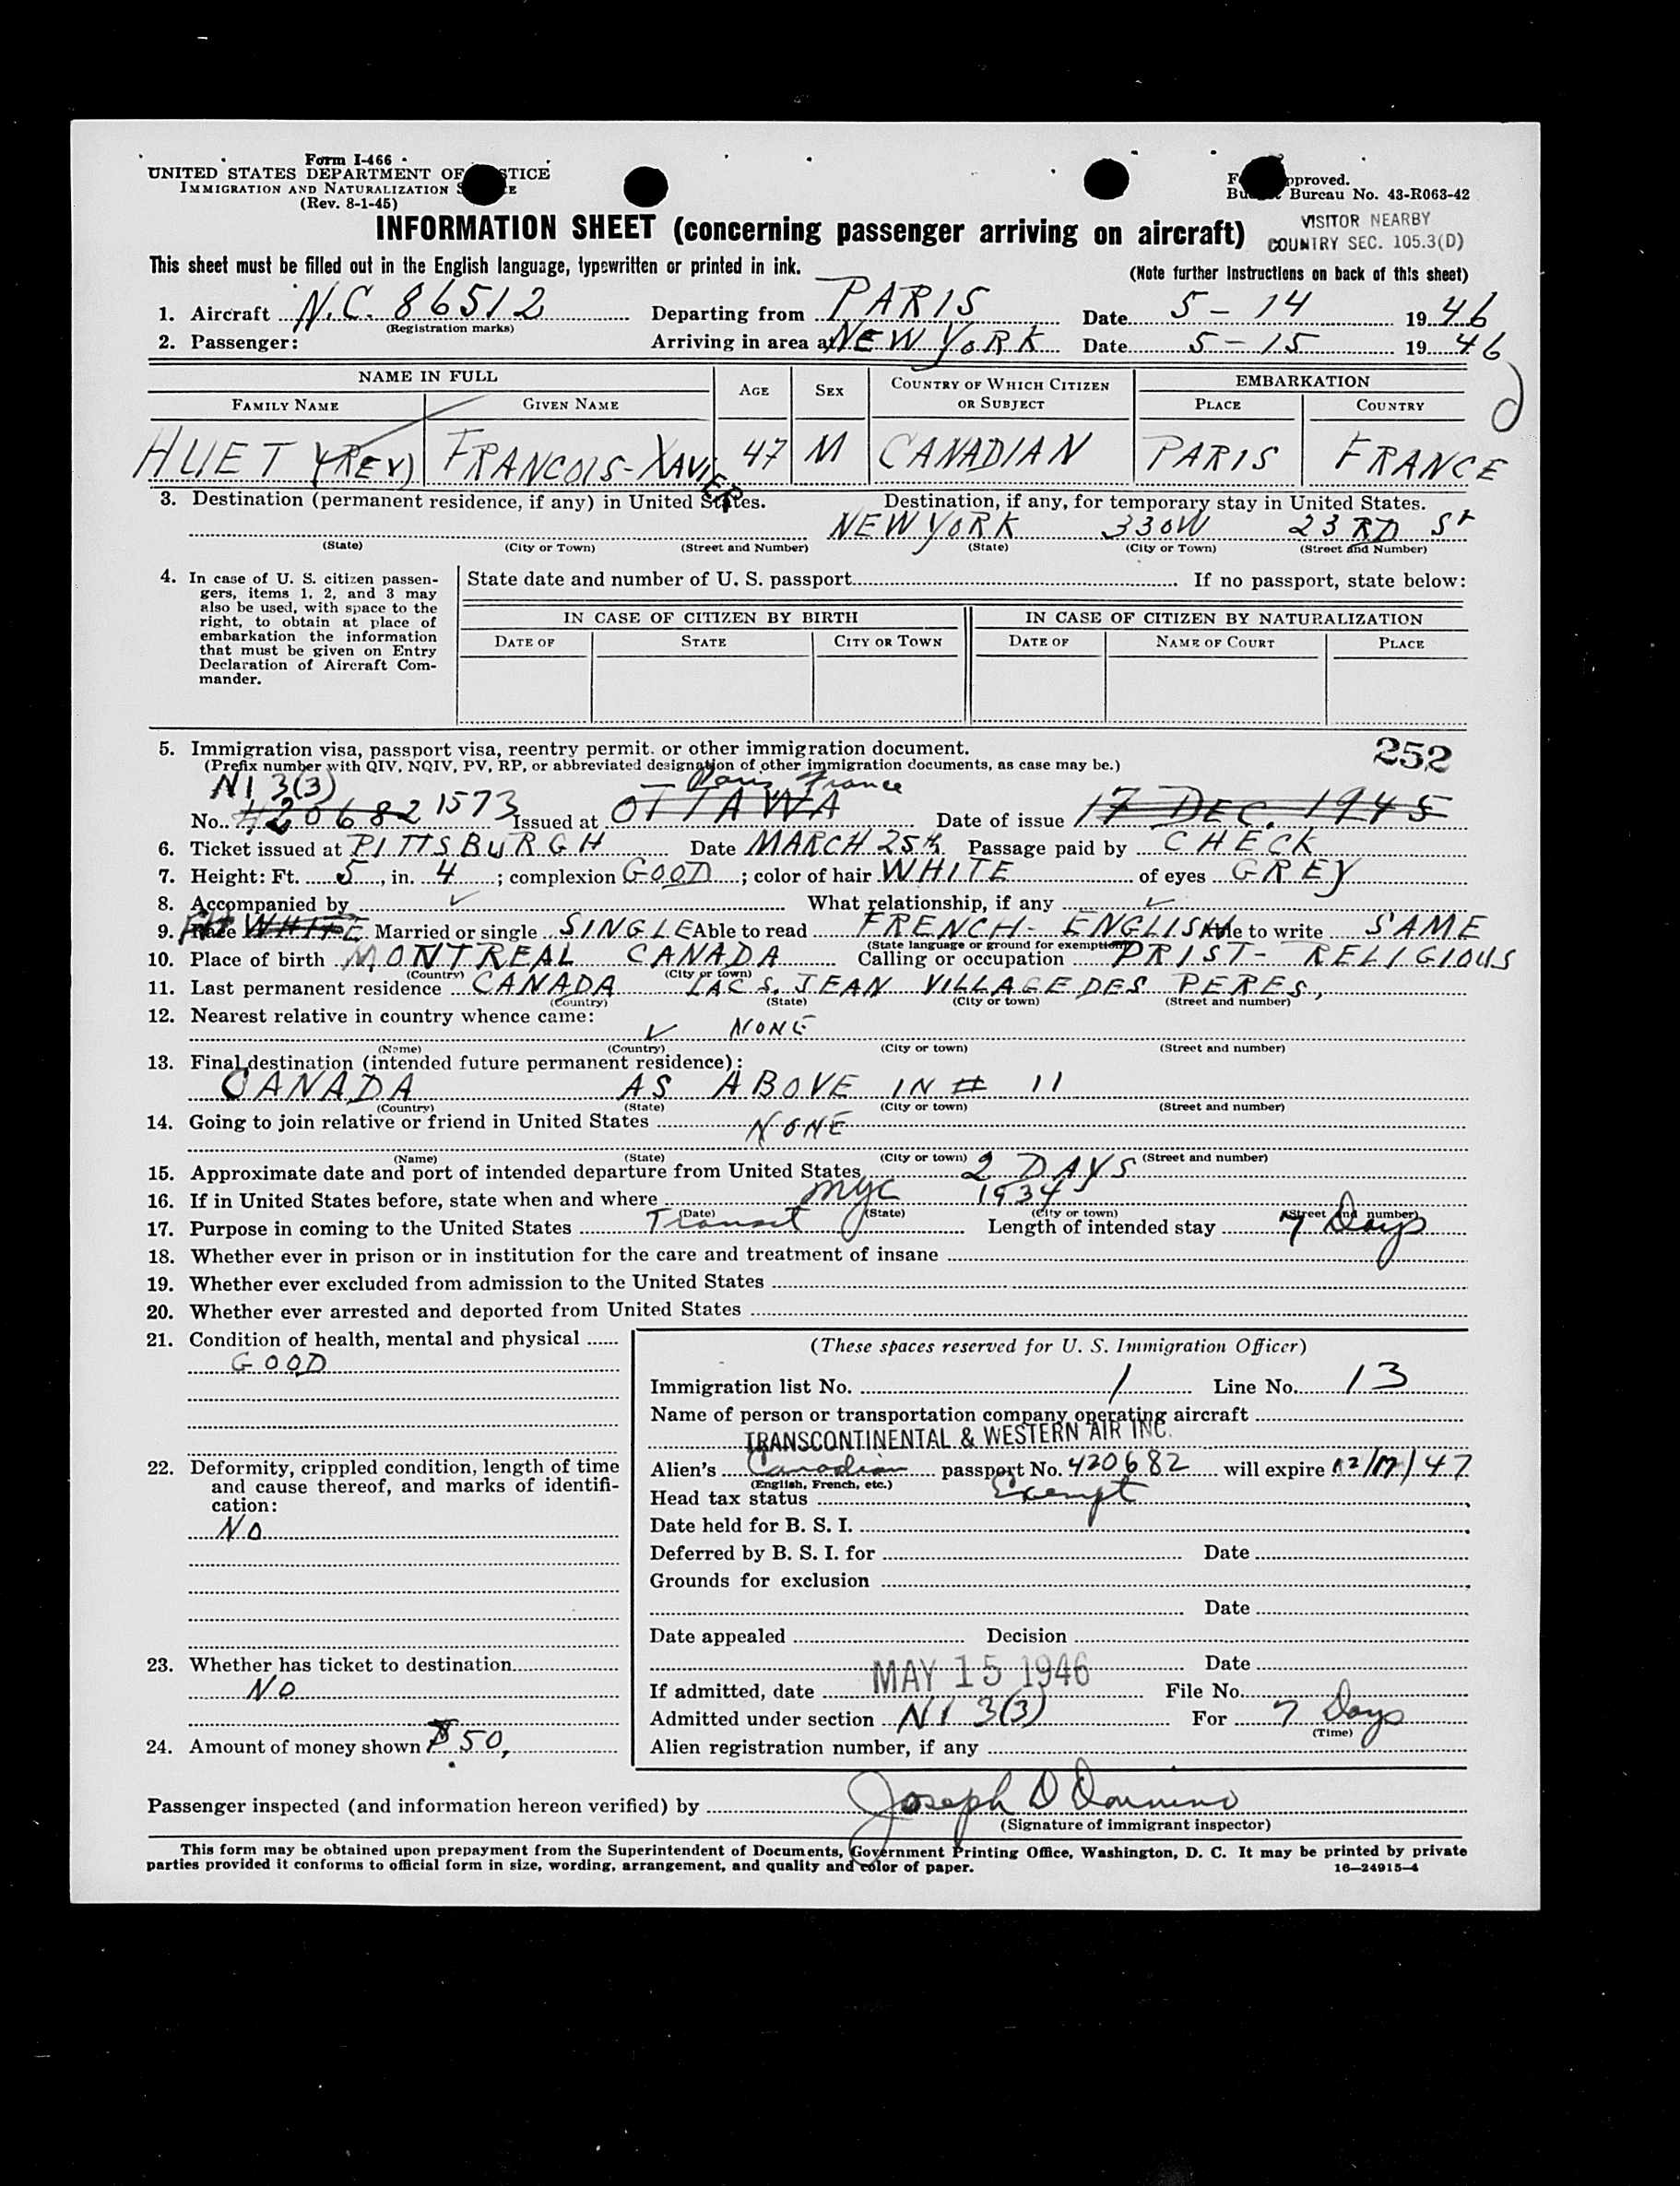 Form I-466
UNITED STATES DEPARTMENT OF STICE
IMMIGRATION AND NATURALIZATION S E
(Rev. 8-1-45)
F pproved.
Bu t Bureau No. 43-R063-42
INFORMATION SHEET (concerning passenger arriving on aircraft)
VISITOR NEARBY
COUNTRY SEC. 105.3(D)
This sheet must be filled out in the English language, typewritten or printed in ink.
(Note further instructions on back of this sheet)
1. Aircraft N.C. 86512 Departing from PARIS Date 5-14 1946
(Registration marks)
2. Passenger: Arriving in area at NEW YORK Date 5-15 1946
NAME IN FULL AGE SEX COUNTRY OF WHICH CITIZEN OR SUBJECT EMBARKATION
FAMILY NAME GIVEN NAME PLACE COUNTRY
HUET (REV) FRANCOIS-XAVIER 47 M CANADIAN PARIS FRANCE
3. Destination (permanent residence, if any) in United States. Destination, if any, for temporary stay in United States.
NEW YORK 330W 23RD St
(State) (City or Town) (Street and Number) (State) (City or Town) (Street and Number)
4. In case of U. S. citizen passen-
gers, items 1, 2, and 3 may
also be used, with space to the
right, to obtain at place of
embarkation the information
that must be given on Entry
Declaration of Aircraft Com-
mander.
State date and number of U. S. passport If no passport, state below:
IN CASE OF CITIZEN BY BIRTH IN CASE OF CITIZEN BY NATURALIZATION
DATE OF STATE CITY OR TOWN DATE OF NAME OF COURT PLACE
5. Immigration visa, passport visa, reentry permit, or other immigration document. 252
(Prefix number with QIV, NQIV, PV, RP, or abbreviated designation of other immigration documents, as case may be.)
NI 3(3) Paris, France
No. 420682 1573 Issued at OTTAWA Date of issue 17 DEC. 1945
6. Ticket issued at PITTSBURGH Date MARCH 25th Passage paid by CHECK
7. Height: Ft. 5, in. 4; complexion GOOD; color of hair WHITE of eyes GREY
8. Accompanied by ✓ What relationship, if any ✓
9. Race WHITE Married or single SINGLE Able to read FRENCH-ENGLISH Able to write SAME
(State language or ground for exemption)
10. Place of birth MONTREAL CANADA Calling or occupation PRIST-RELIGIOUS
(Country) (City or town)
11. Last permanent residence CANADA LAC S. JEAN VILLAGE DES PERES,
(Country) (State) (City or town) (Street and number)
12. Nearest relative in country whence came:
✓ NONE
(Name) (Country) (City or town) (Street and number)
13. Final destination (intended future permanent residence):
CANADA AS ABOVE IN # 11
(Country) (State) (City or town) (Street and number)
14. Going to join relative or friend in United States NONE
(Name) (State) (City or town) (Street and number)
15. Approximate date and port of intended departure from United States 2 DAYS
16. If in United States before, state when and where NYC 1934
(Date) (State) (City or town) (Street and number)
17. Purpose in coming to the United States Transit Length of intended stay 7 Days
18. Whether ever in prison or in institution for the care and treatment of insane
19. Whether ever excluded from admission to the United States
20. Whether ever arrested and deported from United States
21. Condition of health, mental and physical
GOOD
22. Deformity, crippled condition, length of time
and cause thereof, and marks of identifi-
cation:
NO
23. Whether has ticket to destination
NO
24. Amount of money shown $50,
(These spaces reserved for U. S. Immigration Officer)
Immigration list No. 1 Line No. 13
Name of person or transportation company operating aircraft
TRANSCONTINENTAL & WESTERN AIR INC.
Alien's Canadian passport No. 420682 will expire 12/17/47
(English, French, etc.)
Head tax status Exempt
Date held for B. S. I.
Deferred by B. S. I. for Date
Grounds for exclusion
Date
Date appealed Decision
Date
If admitted, date MAY 15 1946 File No.
Admitted under section NI 3(3) For 7 Days
(Time)
Alien registration number, if any
Passenger inspected (and information hereon verified) by Joseph D
(Signature of immigrant inspector)
This form may be obtained upon prepayment from the Superintendent of Documents, Government Printing Office, Washington, D. C. It may be printed by private
parties provided it conforms to official form in size, wording, arrangement, and quality and color of paper. 16—24915-4